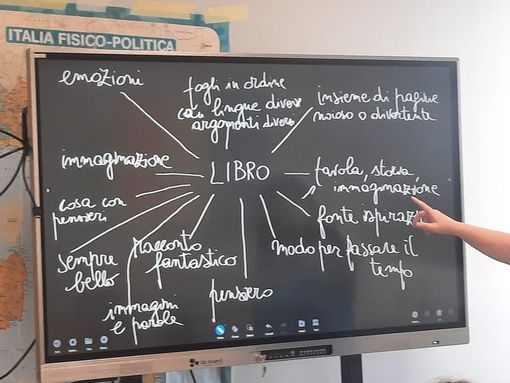 ITALIA FISICO-POLITICA
emozioni
fogli in ordine
con lingue diverse
argomenti diversi
insieme di pagine
noioso o divertente
immaginazione
LIBRO
favola, storia,
immaginazione
cosa con
pensieri
fonte ispiraz
sempre
bello
racconto
fantastico
modo per passare il
tempo
immagini
e parole
pensiero